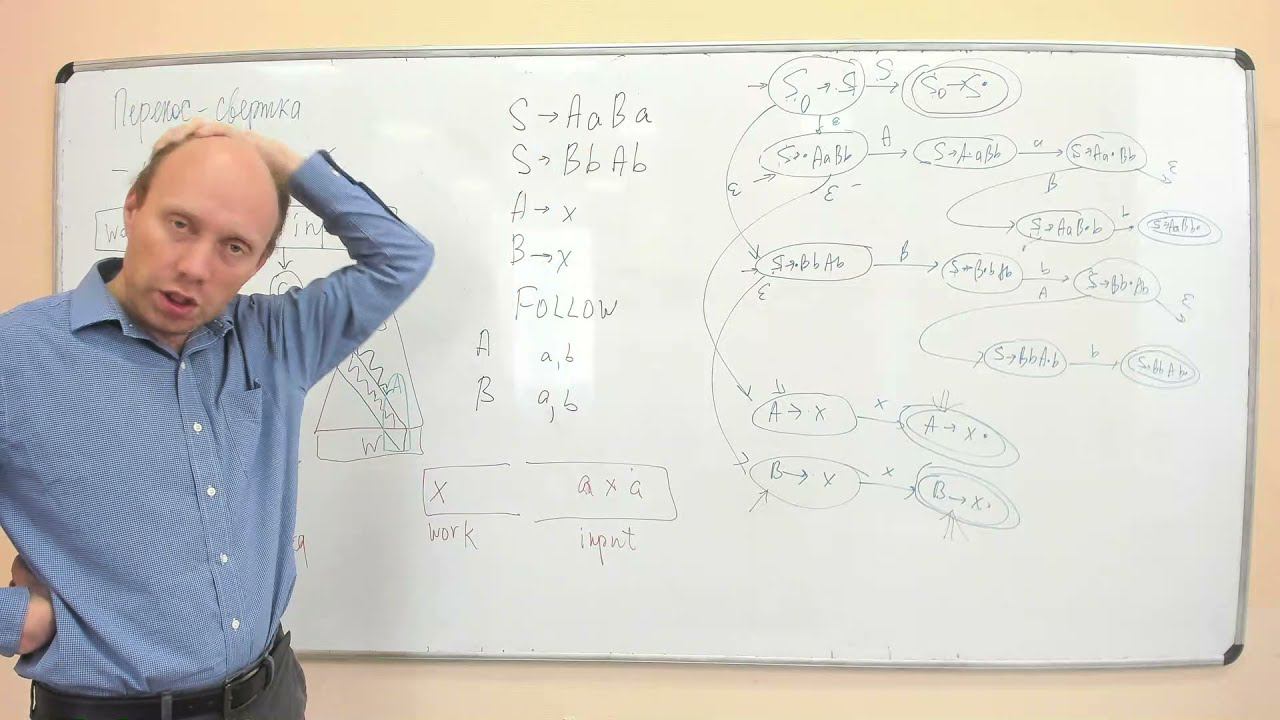 Перенос-свертка
S → AaBa
S → BbAb
A → x
B → x
FOLLOW
A a, b
B a, b
x a x a
work input
S₀ → ·S S S₀ → S·
ε
S → ·AaBb A S → A·aBb a S → Aa·Bb
ε ε ε
B
S → AaB·b b S → AaBb·
S → ·BbAb B S → B·bAb b S → Bb·Ab
ε A ε
S → BbA·b b S → BbAb·
A → ·x x A → x·
B → ·x x B → x·
A
W